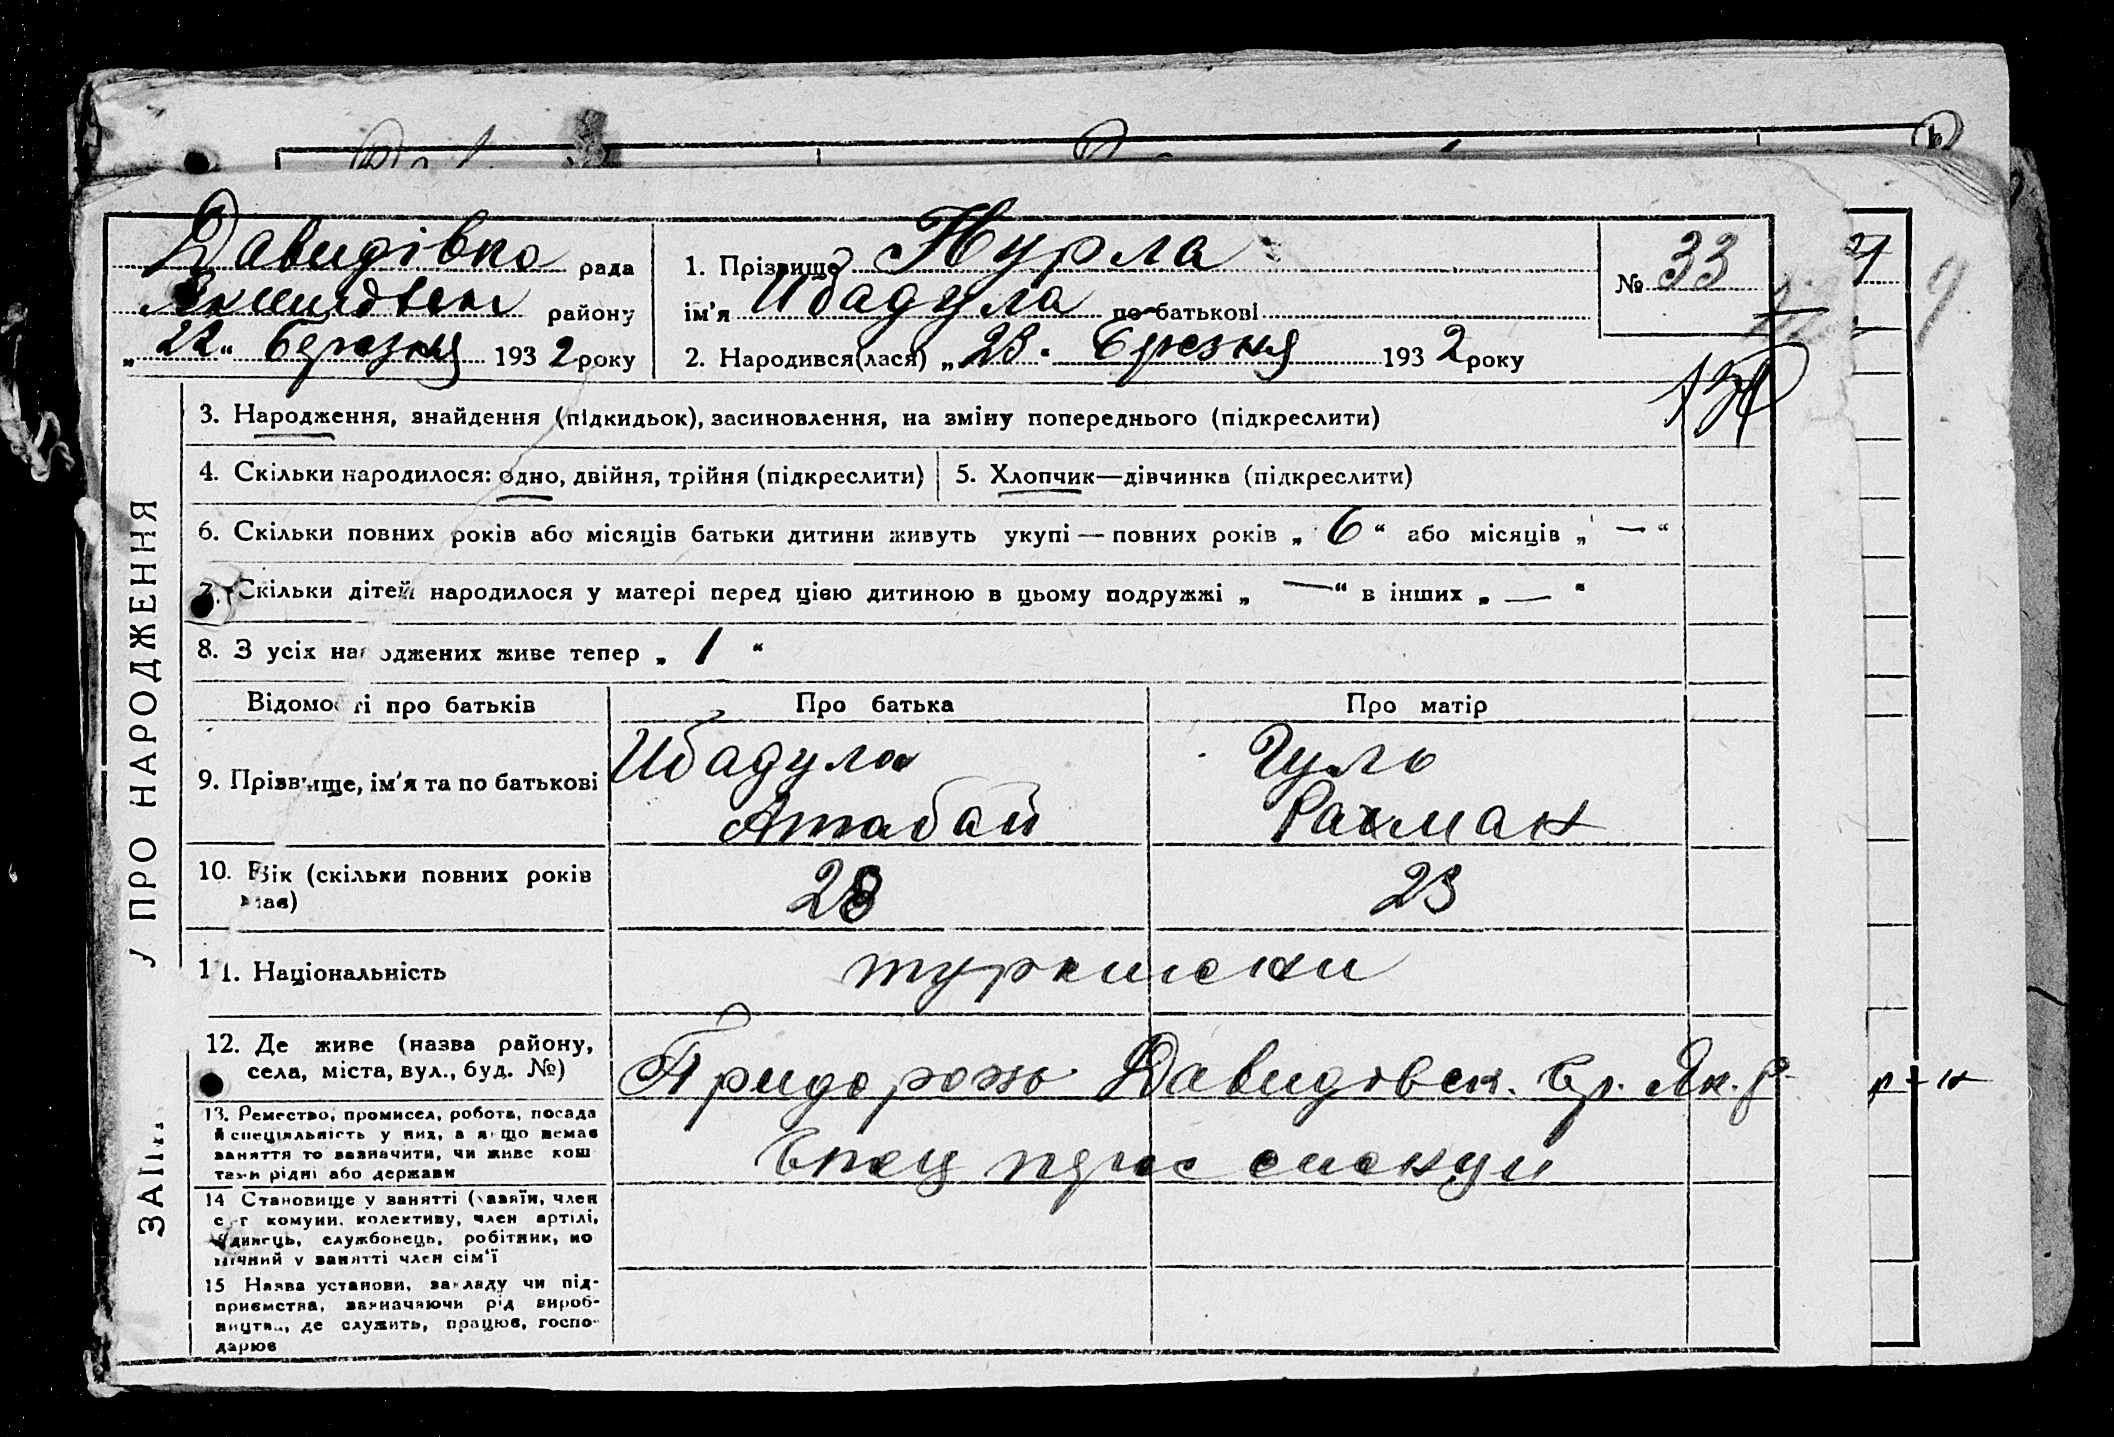 Давидівка рада
Якимівськ району
„22“ березня 1932 року
1. Прізвище Нурла
ім'я Ибадула по батькові
2. Народився(лася) „23“ березня 1932 року
№ 33
3. Народження, знайдення (підкидьок), засиновлення, на зміну попереднього (підкреслити)
4. Скільки народилося: одно, двійня, трійня (підкреслити)
5. Хлопчик—дівчинка (підкреслити)
6. Скільки повних років або місяців батьки дитини живуть укупі — повних років „6“ або місяців „—“
7. Скільки дітей народилося у матері перед цією дитиною в цьому подружжі „—“ в інших „—“
8. З усіх народжених живе тепер „1“
Відомості про батьків
Про батька
Про матір
9. Прізвище, ім'я та по батькові
Ибадула
Атабай
Гуль
Рахман
10. Вік (скільки повних років має)
28
23
11. Національність
туркмени
12. Де живе (назва району,
села, міста, вул., буд. №)
Придорожь Давидовск. Ср. Як. р
13. Ремество, промисел, робота, посада
й спеціяльність у них, а якщо немає
заняття то зазначити, чи живе кош
тами рідні або держави
Спец
14 Становище у занятті (хазяїн, член
с-г комуни, колективу, член артілі,
одинець, службовець, робітник, по
мічний у занятті член сім'ї
15 Назва установи, закладу чи під-
приємства, зазначаючи рід вироб-
ництва, де служить, працює, госпо-
дарює
У ПРО НАРОДЖЕННЯ